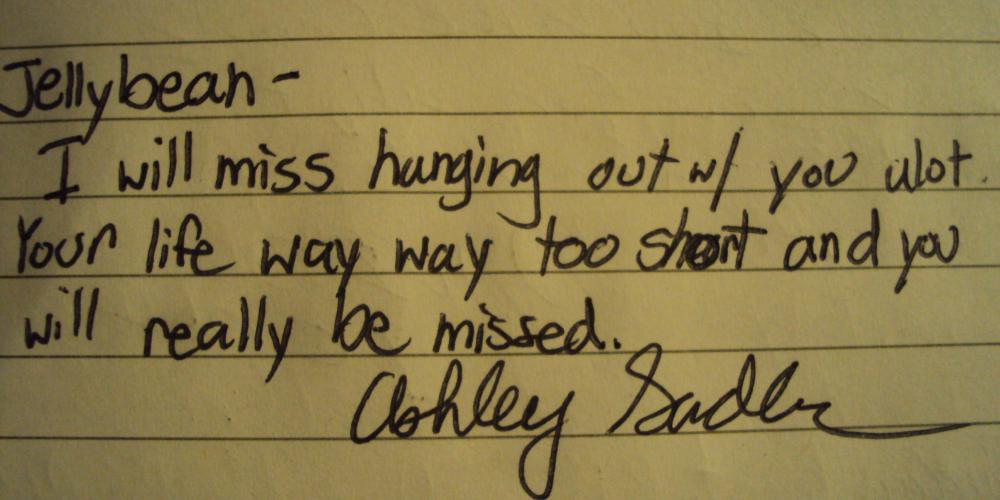 Jellybean -
I will miss hanging out w/ you alot.
Your life way way too short and you
will really be missed.
Ashley Sadler